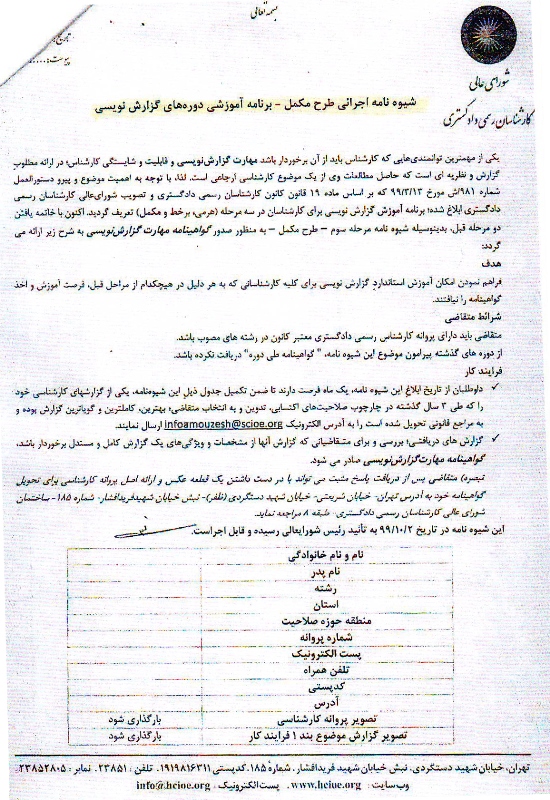 بسمه تعالی
تاریخ
پیوست:.....
شورای عالی
کارشناسان رسمی دادگستری
شیوه نامه اجرائی طرح مکمل - برنامه آموزشی دوره‌های گزارش نویسی
یکی از مهمترین توانمندی‌هایی که کارشناس باید از آن برخوردار باشد مهارت گزارش‌نویسی و قابلیت و شایستگی کارشناس؛ در ارائه مطلوب
گزارش و نظریه ای است که حاصل مطالعات وی از یک موضوع کارشناسی ارجاعی است. لذا، با توجه به اهمیت موضوع و پیرو دستورالعمل
شماره ۹۸۱/ش مورخ ۹۹/۳/۱۳ که بر اساس ماده ۱۹ قانون کانون کارشناسان رسمی دادگستری و تصویب شورای‌عالی کارشناسان رسمی
دادگستری ابلاغ شده؛ برنامه آموزش گزارش نویسی برای کارشناسان در سه مرحله (هرمی، برخط و مکمل) تعریف گردید. اکنون با خاتمه یافتن
دو مرحله قبل، بدینوسیله شیوه نامه مرحله سوم - طرح مکمل - به منظور صدور گواهینامه مهارت گزارش‌نویسی به شرح زیر ارائه می
گردد:
هدف
فراهم نمودن امکان آموزش استاندارد گزارش نویسی برای کلیه کارشناسانی که به هر دلیل در هیچکدام از مراحل قبل، فرصت آموزش و اخذ
گواهینامه را نیافتند.
شرائط متقاضی
متقاضی باید دارای پروانه کارشناس رسمی دادگستری معتبر کانون در رشته های مصوب باشد.
از دوره های گذشته پیرامون موضوع این شیوه نامه، " گواهینامه طی دوره" دریافت نکرده باشد.
فرایند کار
✓ داوطلبان از تاریخ ابلاغ این شیوه نامه، یک ماه فرصت دارند تا ضمن تکمیل جدول ذیل این شیوه‌نامه، یکی از گزارشهای کارشناسی خود
را که طی ۳ سال گذشته در چارچوب صلاحیت‌های اکتسابی، تدوین و به انتخاب متقاضی؛ بهترین، کاملترین و گویاترین گزارش بوده و
به مراجع قانونی تحویل شده است را به آدرس الکترونیک infoamouzesh@scioe.org ارسال نمایند.
✓ گزارش های دریافتی؛ بررسی و برای متقاضیانی که گزارش آنها از مشخصات و ویژگی‌های یک گزارش کامل و مستدل برخوردار باشد،
گواهینامه مهارت‌گزارش‌نویسی صادر می شود.
تبصره) متقاضی پس از دریافت پاسخ مثبت می تواند با در دست داشتن یک قطعه عکس و ارائه اصل پروانه کارشناسی برای تحویل
گواهینامه خود به آدرس تهران- خیابان شریعتی- خیابان شهید دستگردی (ظفر)- نبش خیابان شهیدفریدافشار- شماره ۱۸۵- ساختمان
شورای عالی کارشناسان رسمی دادگستری- طبقه ۸ مراجعه نماید.
این شیوه نامه در تاریخ ۹۹/۱۰/۲ به تأئید رئیس شورایعالی رسیده و قابل اجراست.
نام و نام خانوادگی
نام پدر
رشته
استان
منطقه حوزه صلاحیت
شماره پروانه
پست الکترونیک
تلفن همراه
کدپستی
آدرس
تصویر پروانه کارشناسی بارگذاری شود
تصویر گزارش موضوع بند ۱ فرایند کار بارگذاری شود
تهران، خیابان شهید دستگردی، نبش خیابان شهید فریدافشار، شماره ۱۸۵. کدپستی ۱۹۱۹۸۱۶۳۱۱. تلفن : ۲۳۸۵۱. نمابر : ۲۳۸۵۲۸۰۵
وب‌سایت : www.hcioe.org. پست‌الکترونیک : info@hcioe.org